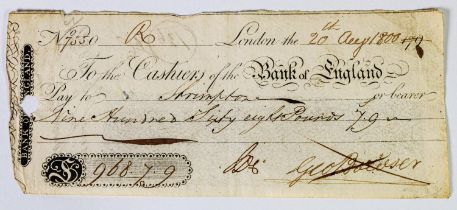 R London the 20th Augt 1800 179
To the Cashiers of the Bank of England
Pay to or bearer
Nine Hundred Sixty eight Pounds 7/9
£ 968.7.9
BANK OF ENGLAND